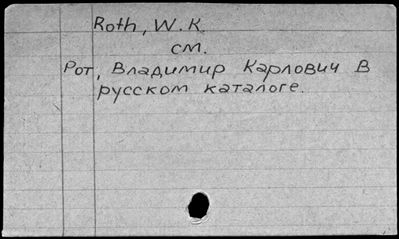 Roth, W.K.
см.
Рот, Владимир Карлович в
русском каталоге.